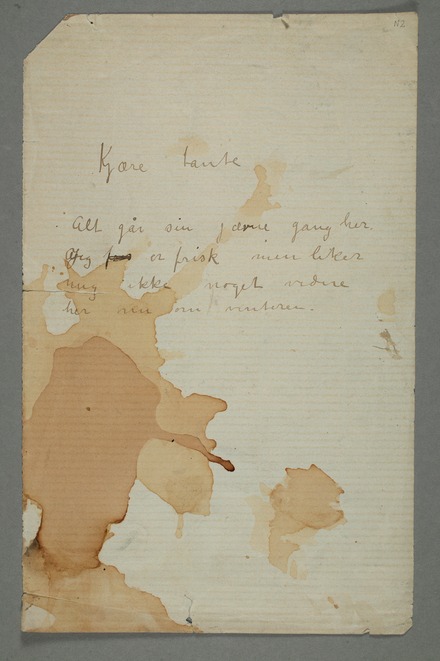 152
Kjære tante
Alt går sin jævne gang her.
Jeg er frisk men liker
mig ikke noget videre
her nu om vinteren.